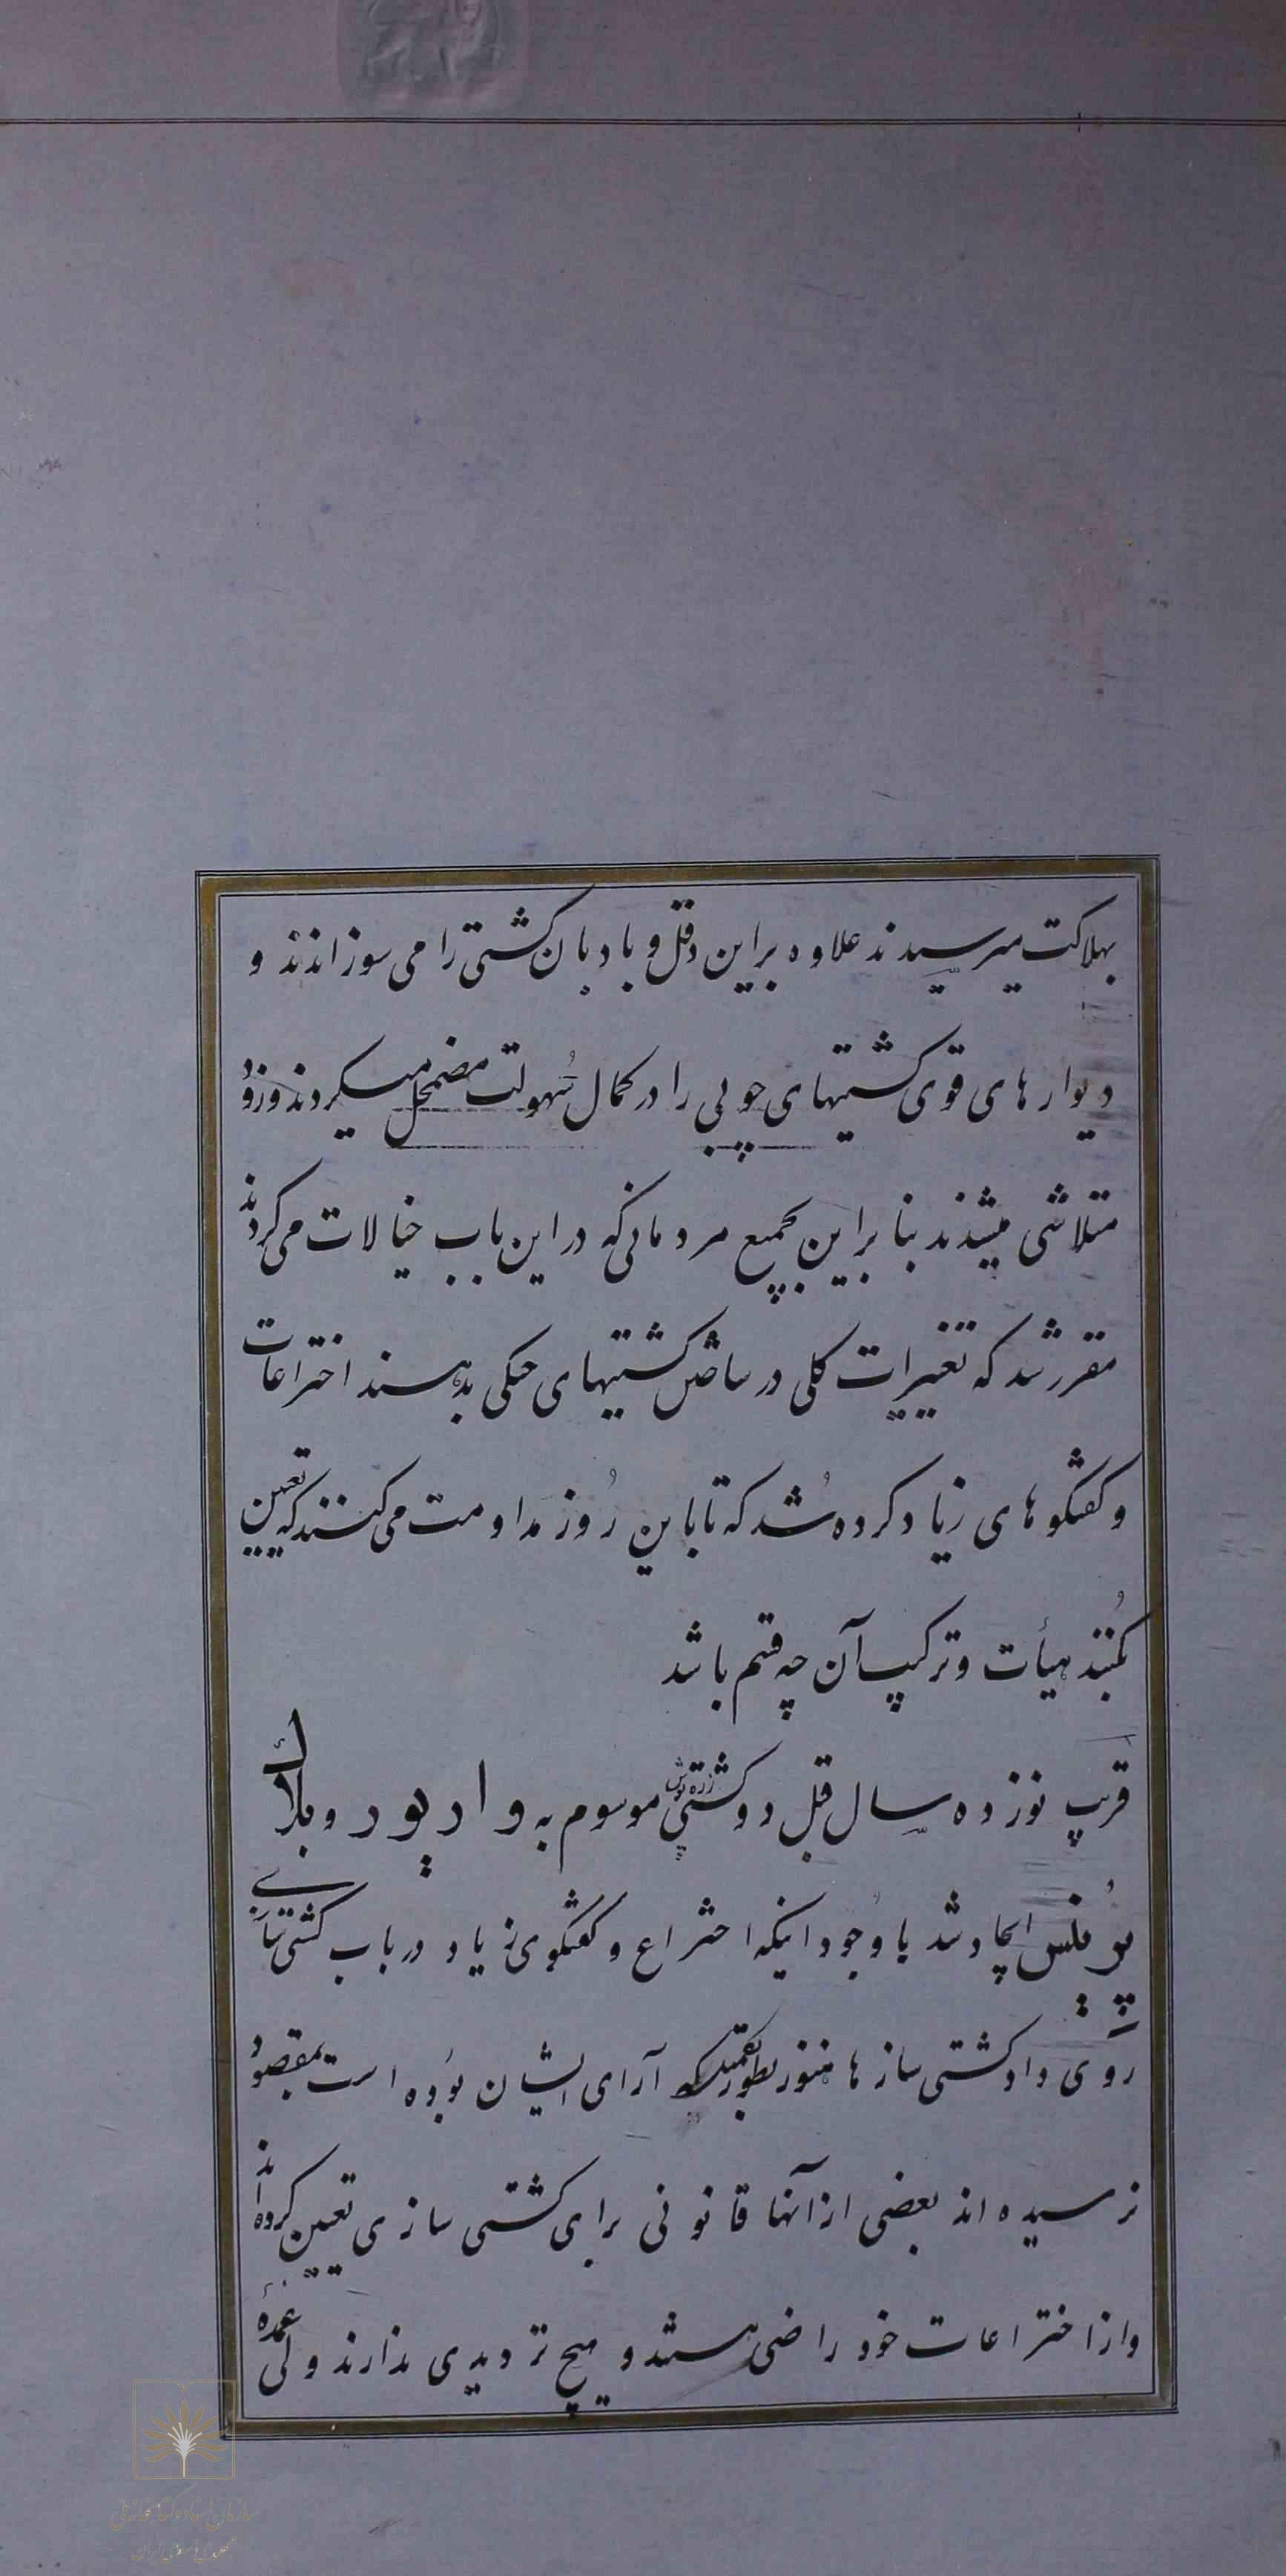 بهلاکت میرسیدند علاوه براین دقل و بادبان کشتی را می سوزاندند و
دیوارهای قوی کشتیهای چوبی را در کمال سُهولت مضمحل میکردند و زود
متلاشی میشدند بنا براین بجمیع مردمانی که در این باب خیالات می کردند
مقرر شد که تغییرات کلی در ساختن کشتیهای جنکی بدهند اختراعات
و کفتکوهای زیاد کرده شُد که تا باین رُوز مداومت می کنند که تعیین
بکُنند هیأت و ترکیب آن چه قسم باشد
قریب نوزده سال قبل دو کشتی زره پوش موسوم به واریور و بلاک
پُرینس ایجاد شد با وُجود اینکه اختراع و کفتکوی زیاد در باب کشتی سازی
روی داد کشتی سازها هنوز بطوریکه آرای ایشان بوُده است بمقصود
نرسیده اند بعضی از آنها قانونی برای کشتی سازی تعیین کرده اند
و از اختراعات خود راضی هستند و هیچ تردیدی ندارند ولی عمدهٔ
سازمان اسناد و کتابخانه ملی
جمهوری اسلامی ایران